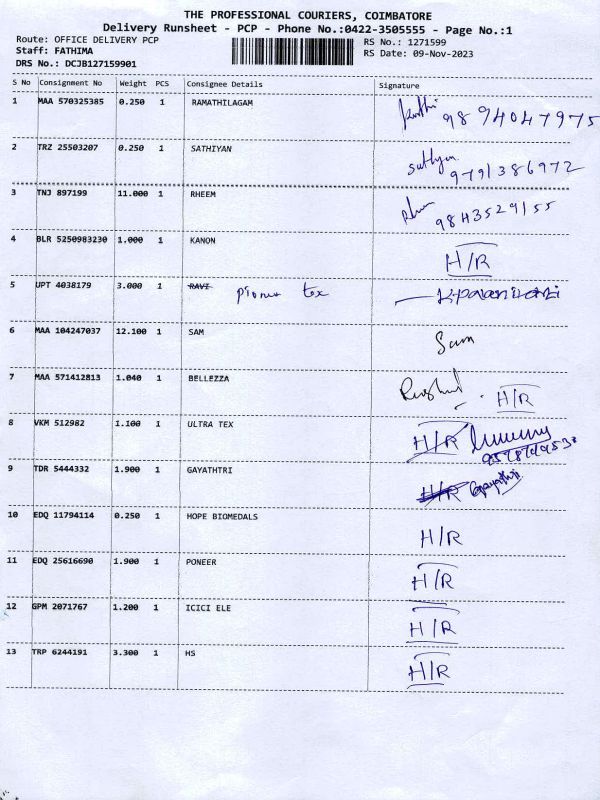 THE PROFESSIONAL COURIERS, COIMBATORE
Delivery Runsheet - PCP - Phone No.:0422-3505555 - Page No.:1
Route: OFFICE DELIVERY PCP
RS No.: 1271599
Staff: FATHIMA
RS Date: 09-Nov-2023
DRS No.: DCJB127159901
S No Consignment No Weight PCS Consignee Details Signature
1 MAA 570325385 0.250 1 RAMATHILAGAM
98 94047975
2 TRZ 25503207 0.250 1 SATHIYAN sathya
9791386972
3 TNJ 897199 11.000 1 RHEEM
9843529155
4 BLR 5250983230 1.000 1 KANON H/R
5 UPT 4038179 3.000 1 RAVI pioner tex
6 MAA 104247037 12.100 1 SAM Sam
7 MAA 571412813 1.040 1 BELLEZZA H/R
8 VKM 512982 1.100 1 ULTRA TEX H/R
9 TDR 5444332 1.900 1 GAYATHTRI H/R Gayathri
10 EDQ 11794114 0.250 1 HOPE BIOMEDALS H/R
11 EDQ 25616690 1.900 1 PONEER H/R
12 GPM 2071767 1.200 1 ICICI ELE H/R
13 TRP 6244191 3.300 1 HS H/R